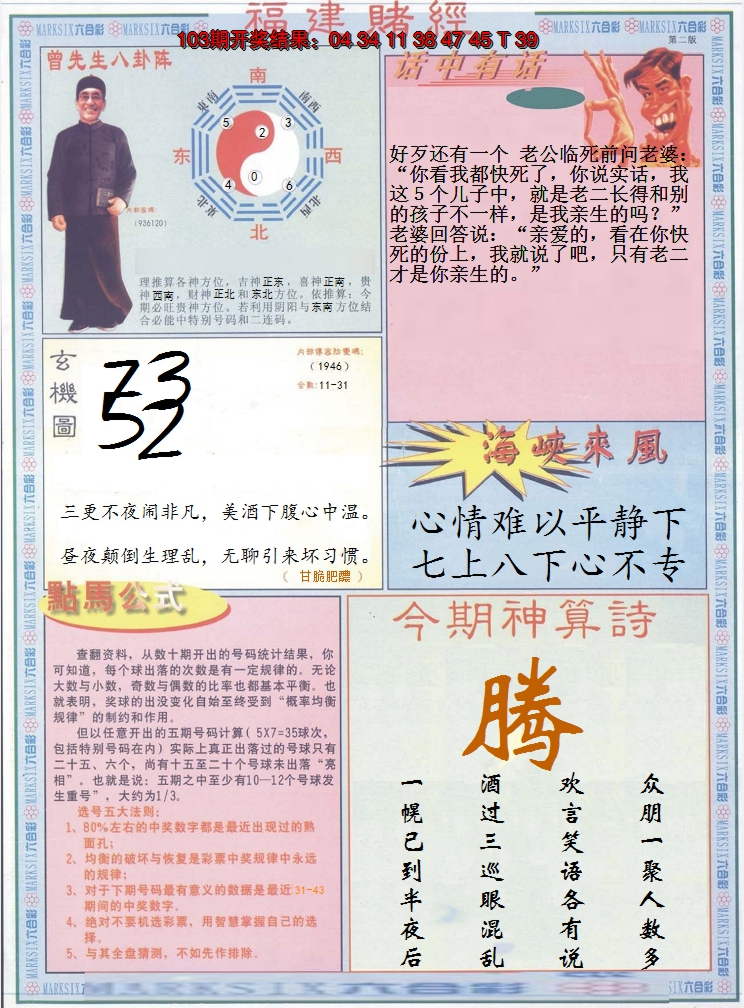 福建賭經
103期开奖结果：04 34 11 38 47 45 T 39
第二版
MARKSIX六合彩
曾先生八卦阵
南
东南
南西
5
2
3
东
西
4
0
6
东北
北西
北
内部密碼:
(936120)
理推算各神方位，吉神正东，喜神正南，贵
神西南，财神正北和东北方位。依推算：今
期必旺贵神方位。若利用阴阳与东南方位结
合必能中特别号码和二连码。
话中有话
好歹还有一个 老公临死前问老婆：
“你看我都快死了，你说实话，我
这５个儿子中，就是老二长得和别
的孩子不一样，是我亲生的吗？”
老婆回答说：“亲爱的，看在你快
死的份上，我就说了吧，只有老二
才是你亲生的。”
玄機圖
73
52
内部傳密防變碼:
(1946)
合数:11-31
三更不夜闹非凡，美酒下腹心中温。
昼夜颠倒生理乱，无聊引来坏习惯。
（ 甘脆肥醲 ）
海峽來風
心情难以平静下
七上八下心不专
點馬公式
查翻资料，从数十期开出的号码统计结果，你
可知道，每个球出落的次数是有一定规律的。无论
大数与小数，奇数与偶数的比率也都基本平衡。也
就表明，奖球的出没变化自始至终受到“概率均衡
规律”的制约和作用。
但以任意开出的五期号码计算( 5X7=35球次，
包括特别号码在内）实际上真正出落过的号球只有
二十五、六个，尚有十五至二十个号球未出落“亮
相”。也就是说：五期之中至少有10—12个号球发
生重号”，大约为1/3。
选号五大法则:
1、80%左右的中奖数字都是最近出现过的熟
面孔；
2、均衡的破坏与恢复是彩票中奖规律中永远
的规律；
3、对于下期号码最有意义的数据是最近31-43
期间的中奖数字。
4、绝对不要机选彩票，用智慧掌握自己的选
择。
5、与其全盘猜测，不如先作排除。
今期神算詩
腾
众朋一聚人数多
欢言笑语各有说
酒过三巡眼混乱
一幌已到半夜后